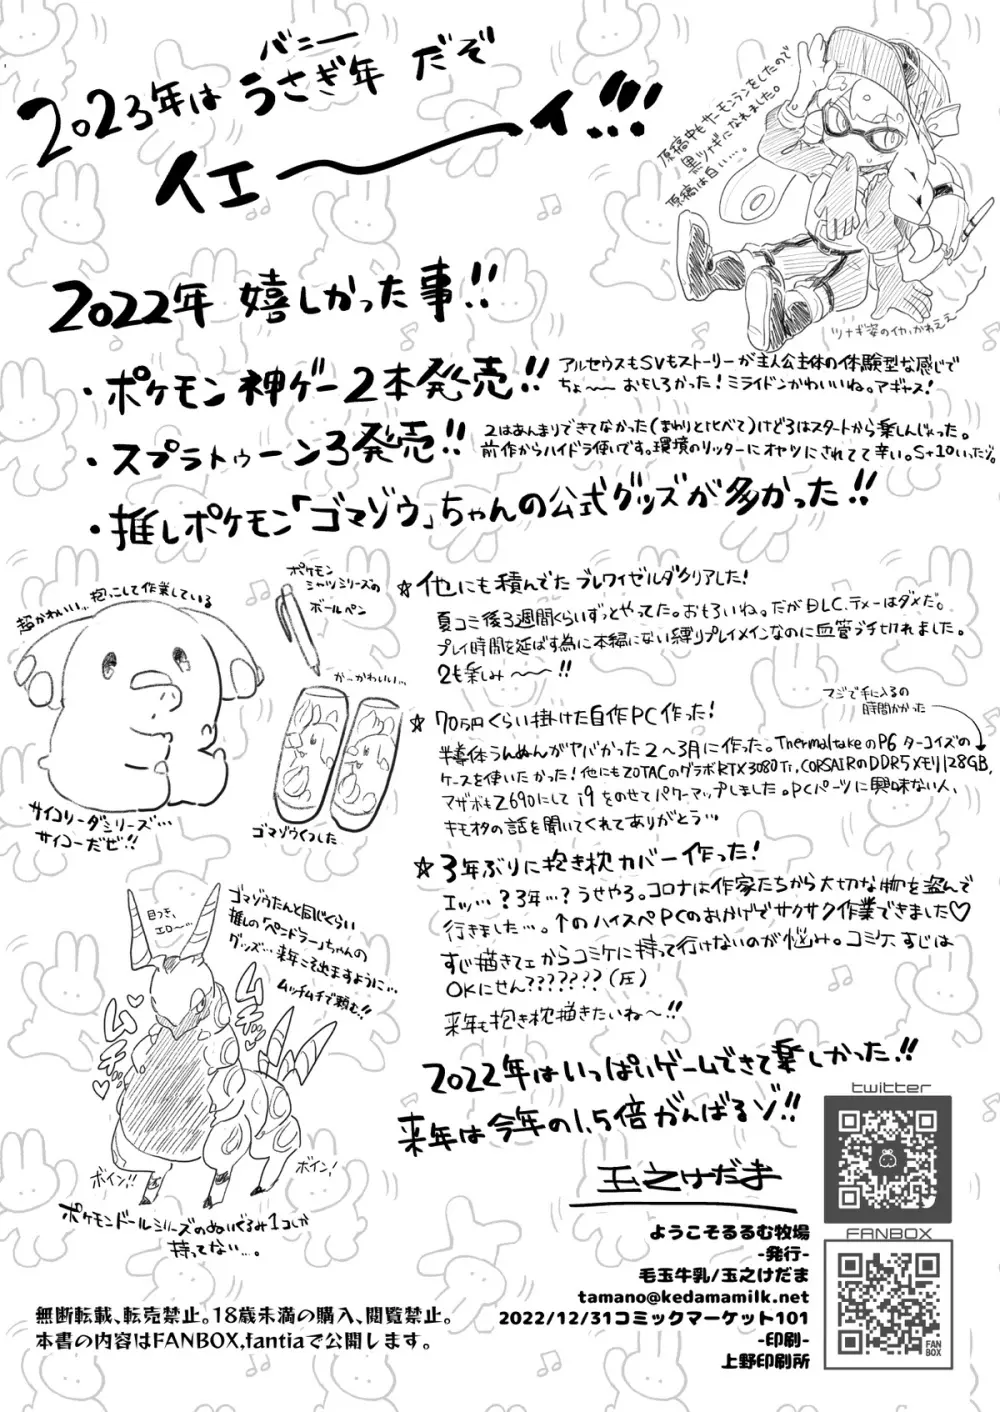 バニー
2023年は うさぎ年 だぞ
イエーーイ!!!
原稿中もサーモンランをしたので
黒ツナギになれました。
原稿は白い…。
ツナギ姿のイカ、かわええ
2022年 嬉しかった事!!
・ポケモン神ゲー2本発売!!
アルセウスもSVもストーリーが主人公主体の体験型な感じで
ちょ〜〜おもしろかった!ミライドンかわいいね。アギャス!
・スプラトゥーン3発売!!
2はあんまりできてなかった(まわりと比べて)けど3はスタートから楽しんじゃった。
前作からハイドラ使いです。環境のリッターにオヤツにされてて辛い。S+10いったゾ。
・推しポケモン「ゴマゾウ」ちゃんの公式グッズが多かった!!
超かわいい…抱っこして作業している
サイコソーダシリーズ…
サイコーだぜ!!
ポケモン
シャツシリーズの
ボールペン
かーかわいい…
ゴマゾウくつした
☆他にも積んでたブレワイゼルダクリアした!
夏コミ後3週間くらいずっとやってた。おもろいね。だがDLC、テメーはダメだ。
プレイ時間を延ばす為に本編にない縛りプレイメインなのに血管ブチ切れました。
2も楽しみ〜〜!!
☆70万円くらい掛けた自作PC作った!
マジで手に入るの
時間かかった
半導体うんぬんがヤバかった2〜3月に作った。ThermaltakeのP6 ターコイズの
ケースを使いたかった!他にもZOTACのグラボRTX3080Ti,CORSAIRのDDR5メモリ128GB,
マザボもZ690にして i9をのせてパワーマップしました。PCパーツに興味ない人、
キモオタの話を聞いてくれてありがとう…
☆3年ぶりに抱き枕カバー作った!
エッ…?3年…?うせやろ。コロナは作家たちから大切な物を盗んで
行きました…。↑のハイスペPCのおかげでサクサク作業できました♡
すじ描きてェからコミケに持って行けないのが悩み。コミケ、すじは
OKにせん???????(圧)
来年も抱き枕描きたいね〜!!
ゴマゾウたんと同じくらい
推しの「ペンドラー」ちゃんの
グッズ…来年こそ出ますように…
ムッチムチで頼む!!
目つき、
エロ〜…
ムチ♡
ムチ…♡
ボイン!!
ボイン!
ポケモンドールシリーズのぬいぐるみ1コしか
持ってない…。
2022年はいっぱいゲームできて楽しかった!!
来年は今年の1.5倍がんばるゾ!!
玉之けだま
twitter
FANBOX
FAN
BOX
ようこそるるむ牧場
-発行-
毛玉牛乳/玉之けだま
tamano@kedamamilk.net
2022/12/31コミックマーケット101
-印刷-
上野印刷所
無断転載、転売禁止。18歳未満の購入、閲覧禁止。
本書の内容はFANBOX,fantiaで公開します。